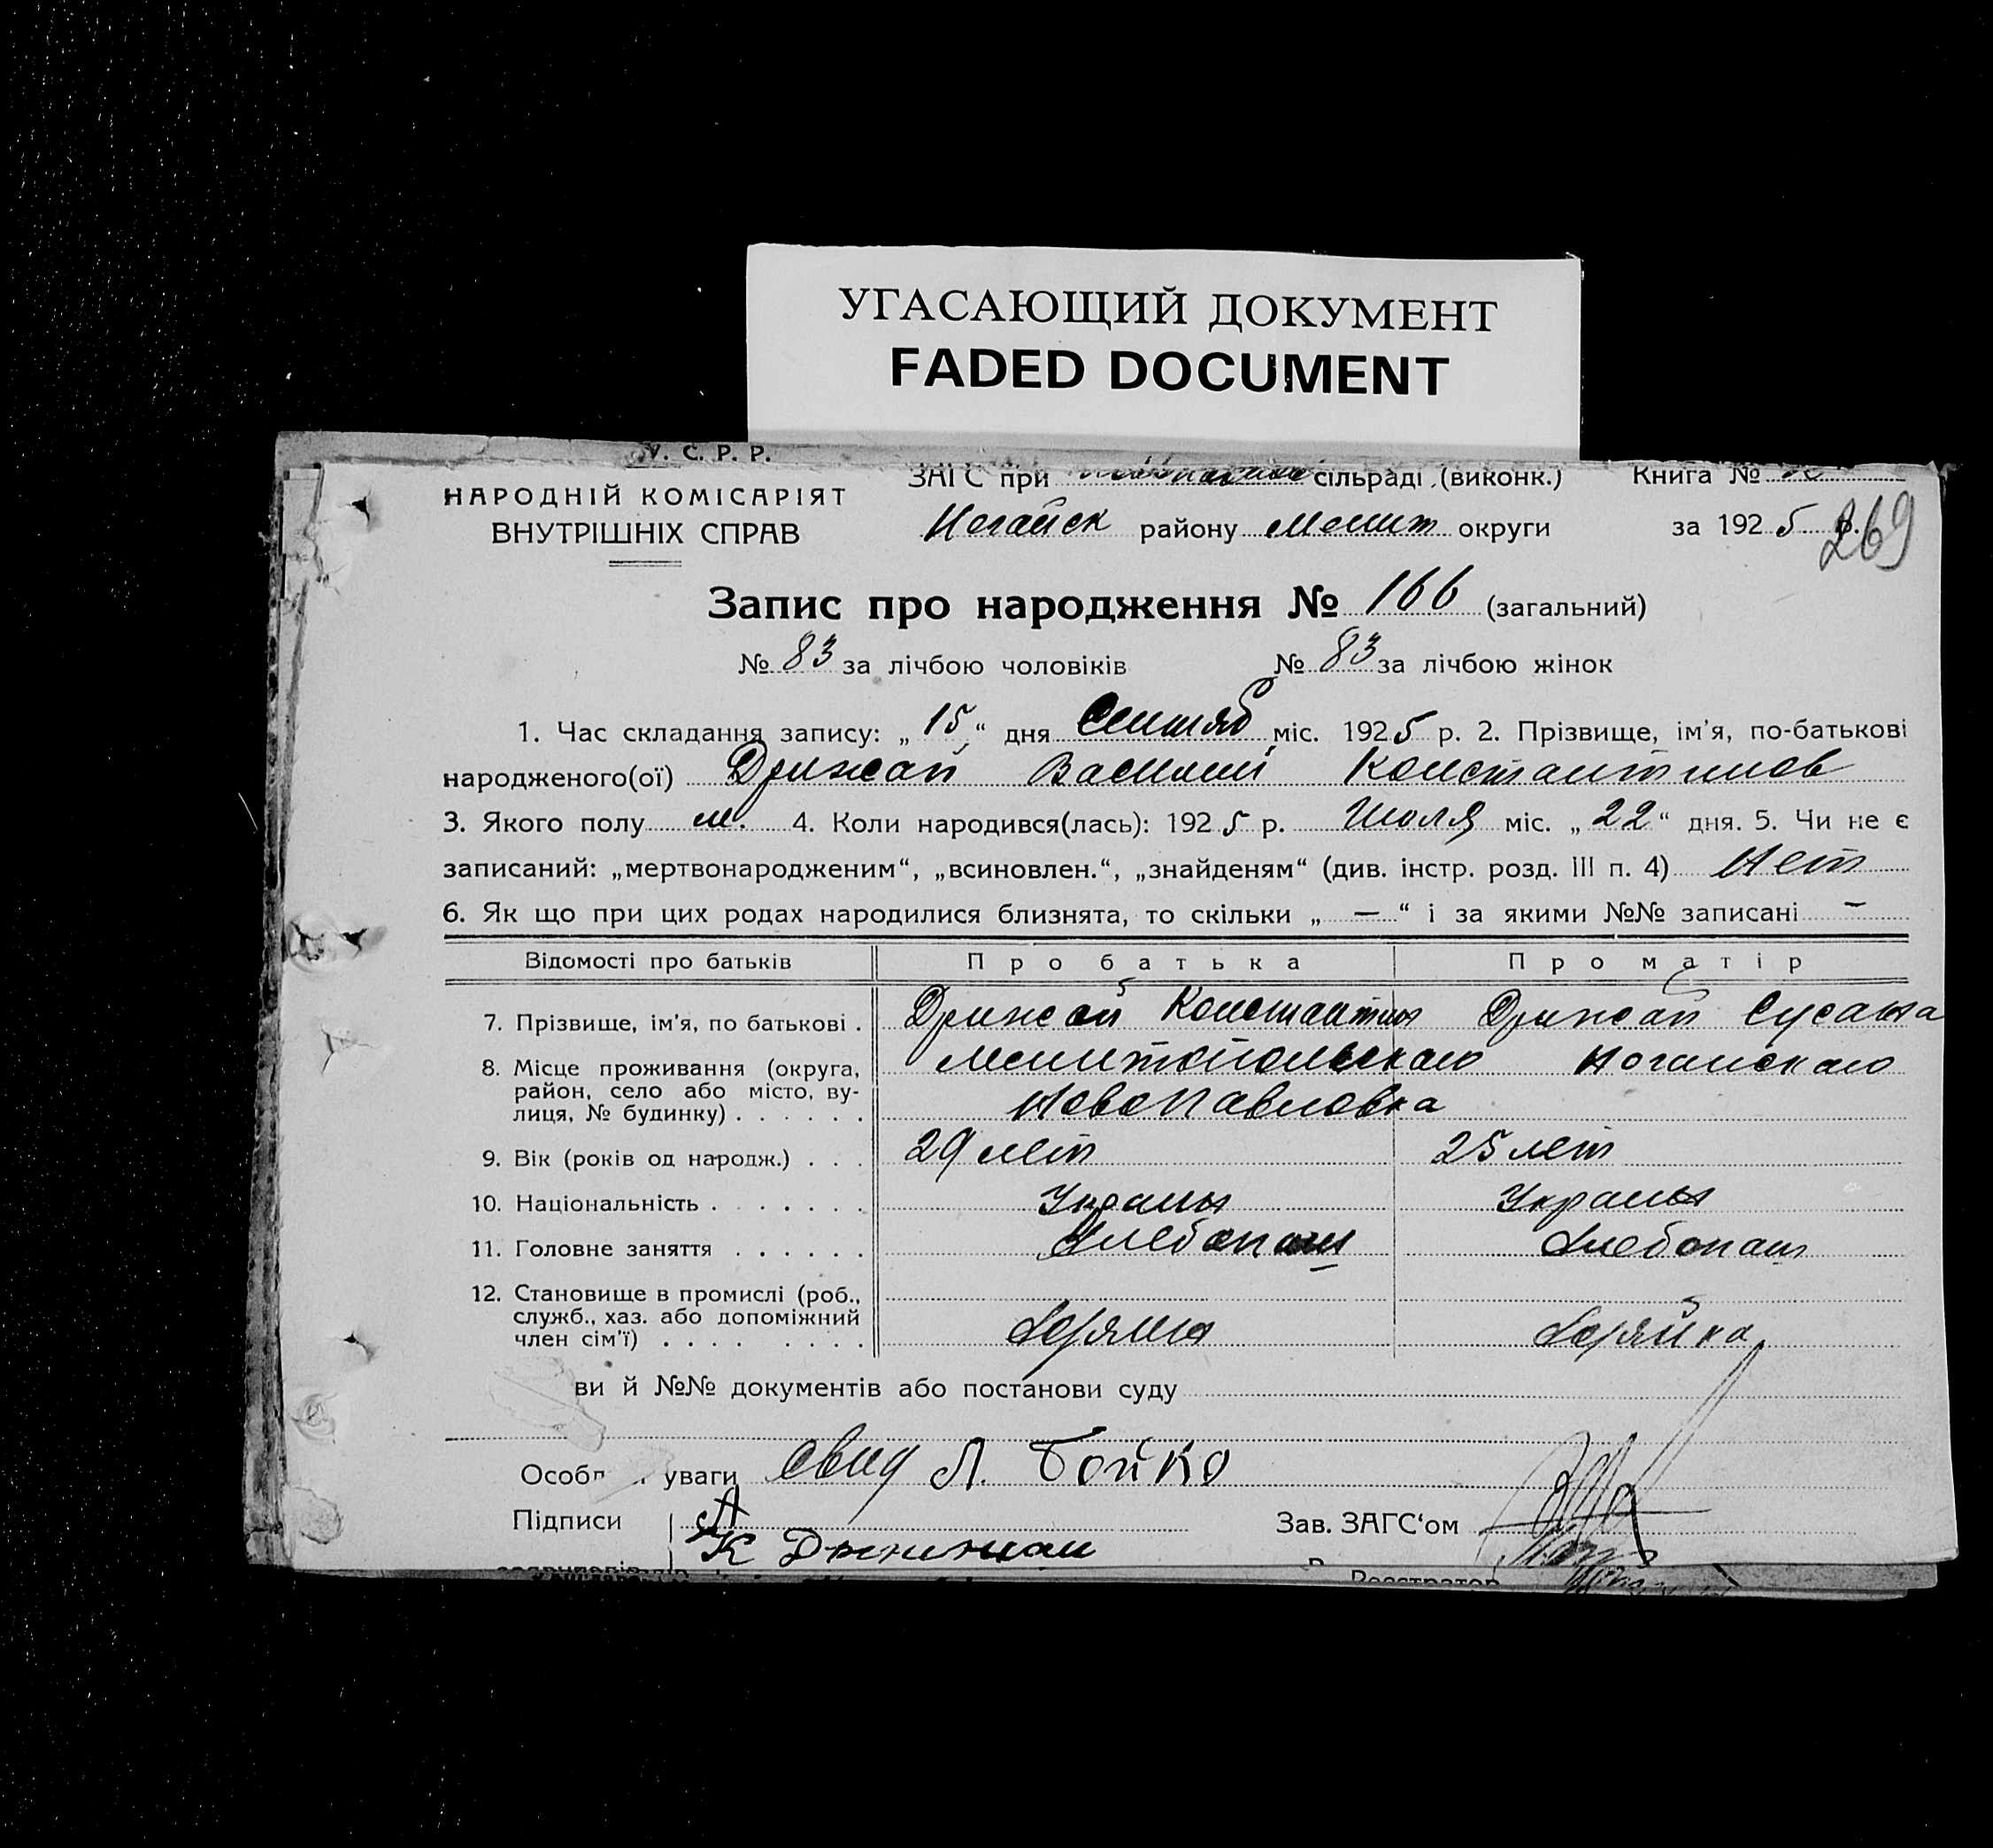 УГАСАЮЩИЙ ДОКУМЕНТ
FADED DOCUMENT
У. С. Р. Р.
НАРОДНІЙ КОМІСАРІЯТ
ВНУТРІШНІХ СПРАВ
ЗАГС при сільраді (виконк.) Книга №
Ногайск району Мелит округи за 1925 р.
269
Запис про народження № 166 (загальний)
№ 83 за лічбою чоловіків № 83 за лічбою жінок
1. Час складання запису: „15“ дня Сентяб міс. 1925 р. 2. Прізвище, ім'я, по-батькові
народженого(ої) Дрижай Василий Константинов
3. Якого полу м. 4. Коли народився(лась): 1925 р. Июля міс. „22“ дня. 5. Чи не є
записаний: „мертвонародженим“, „всиновлен.“, „знайденям“ (див. інстр. розд. III п. 4) Нет
6. Як що при цих родах народилися близнята, то скільки „—“ і за якими №№ записані —
Відомості про батьків Про батька Про матір
7. Прізвище, ім'я, по батькові . Дрижай Константин Дрижай Сусана
8. Місце проживання (округа, район, село або місто, ву-лиця, № будинку) . . . . . . Мелитопольскаго Ногайскаго
Новопавловка
9. Вік (років од народж.) . . . 29 лет 25 лет
10. Національність . . . . . . . Украин Украин
11. Головне заняття . . . . . . Хлебопаш Хлебопаш
12. Становище в промислі (роб., служб., хаз. або допоміжний член сім'ї) . . . . . . . . Хозяин Хозяйка
ви й №№ документів або постанови суду
Особ уваги свид Л. Бойко
Підписи Зав. ЗАГС'ом
К Дрижай
Реєстратор